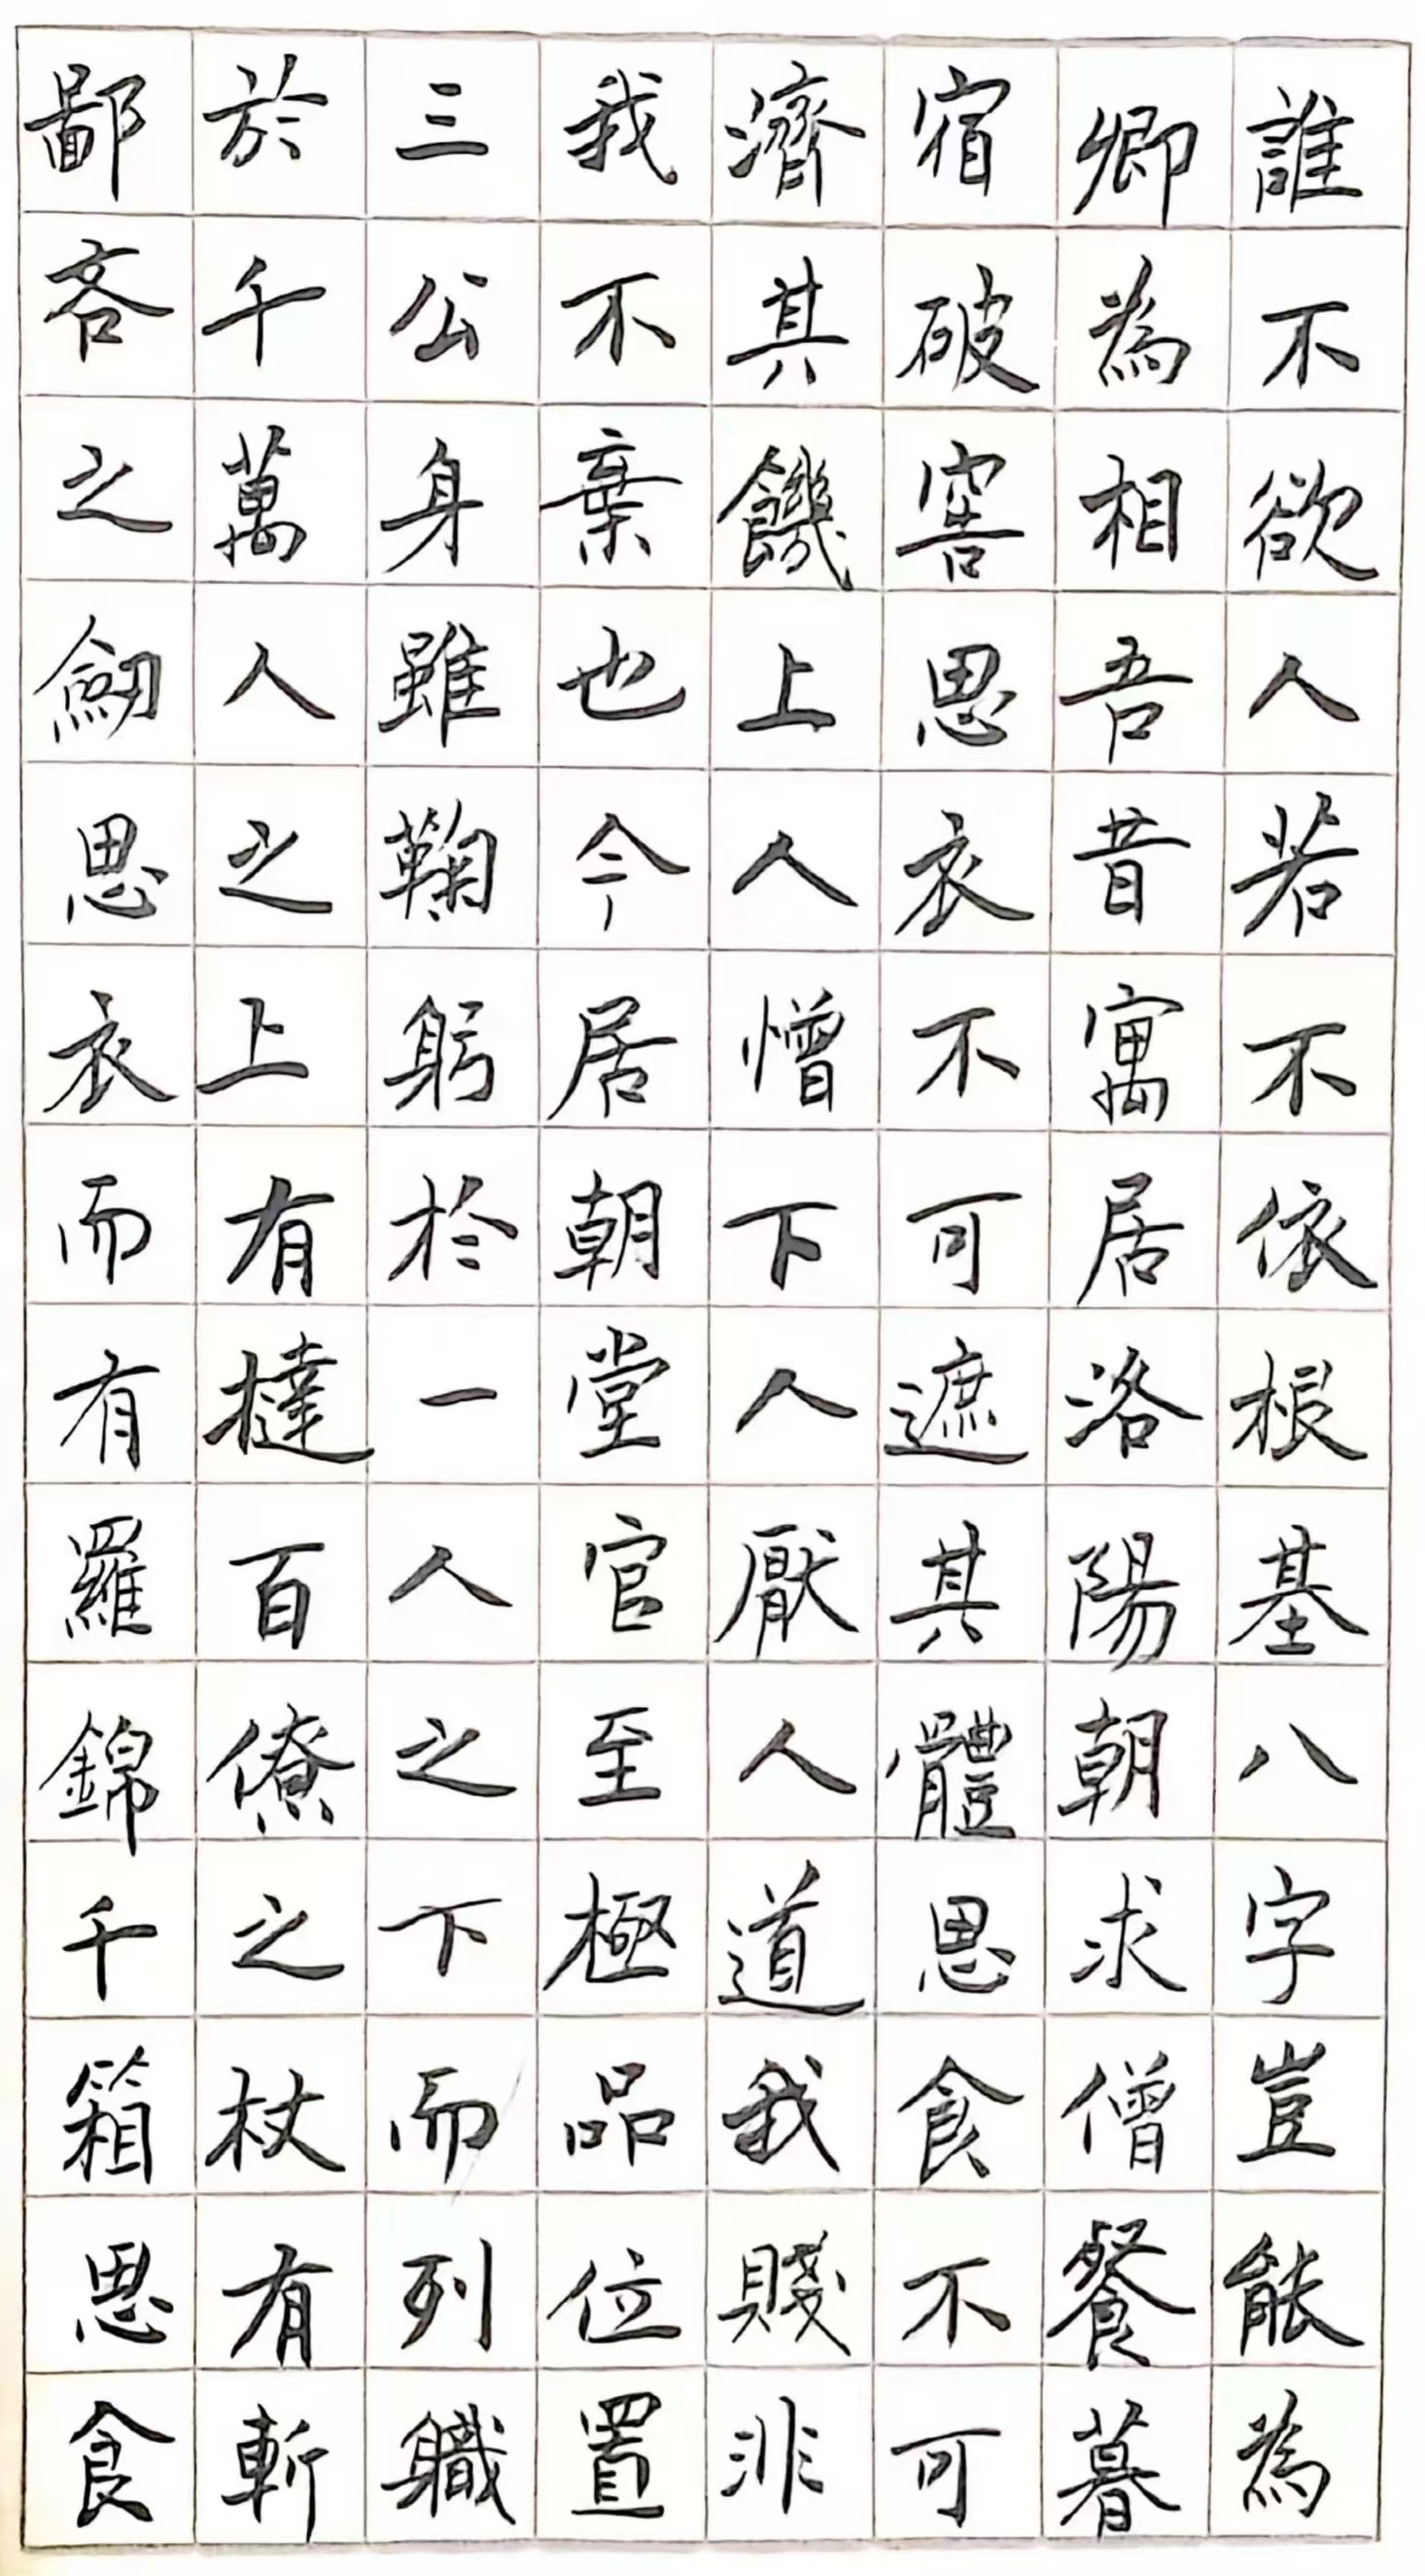 誰不欲人若不依根基八字豈能為
卿為相吾昔寓居洛陽朝求僧餐暮
宿破窖思衣不可遮其體思食不可
濟其饑上人憎下人厭人道我賤非
我不棄也今居朝堂官至極品位置
三公身雖鞠躬於一人之下而列職
於千萬人之上有撻百僚之杖有斬
鄙吝之劒思衣而有羅錦千箱思食